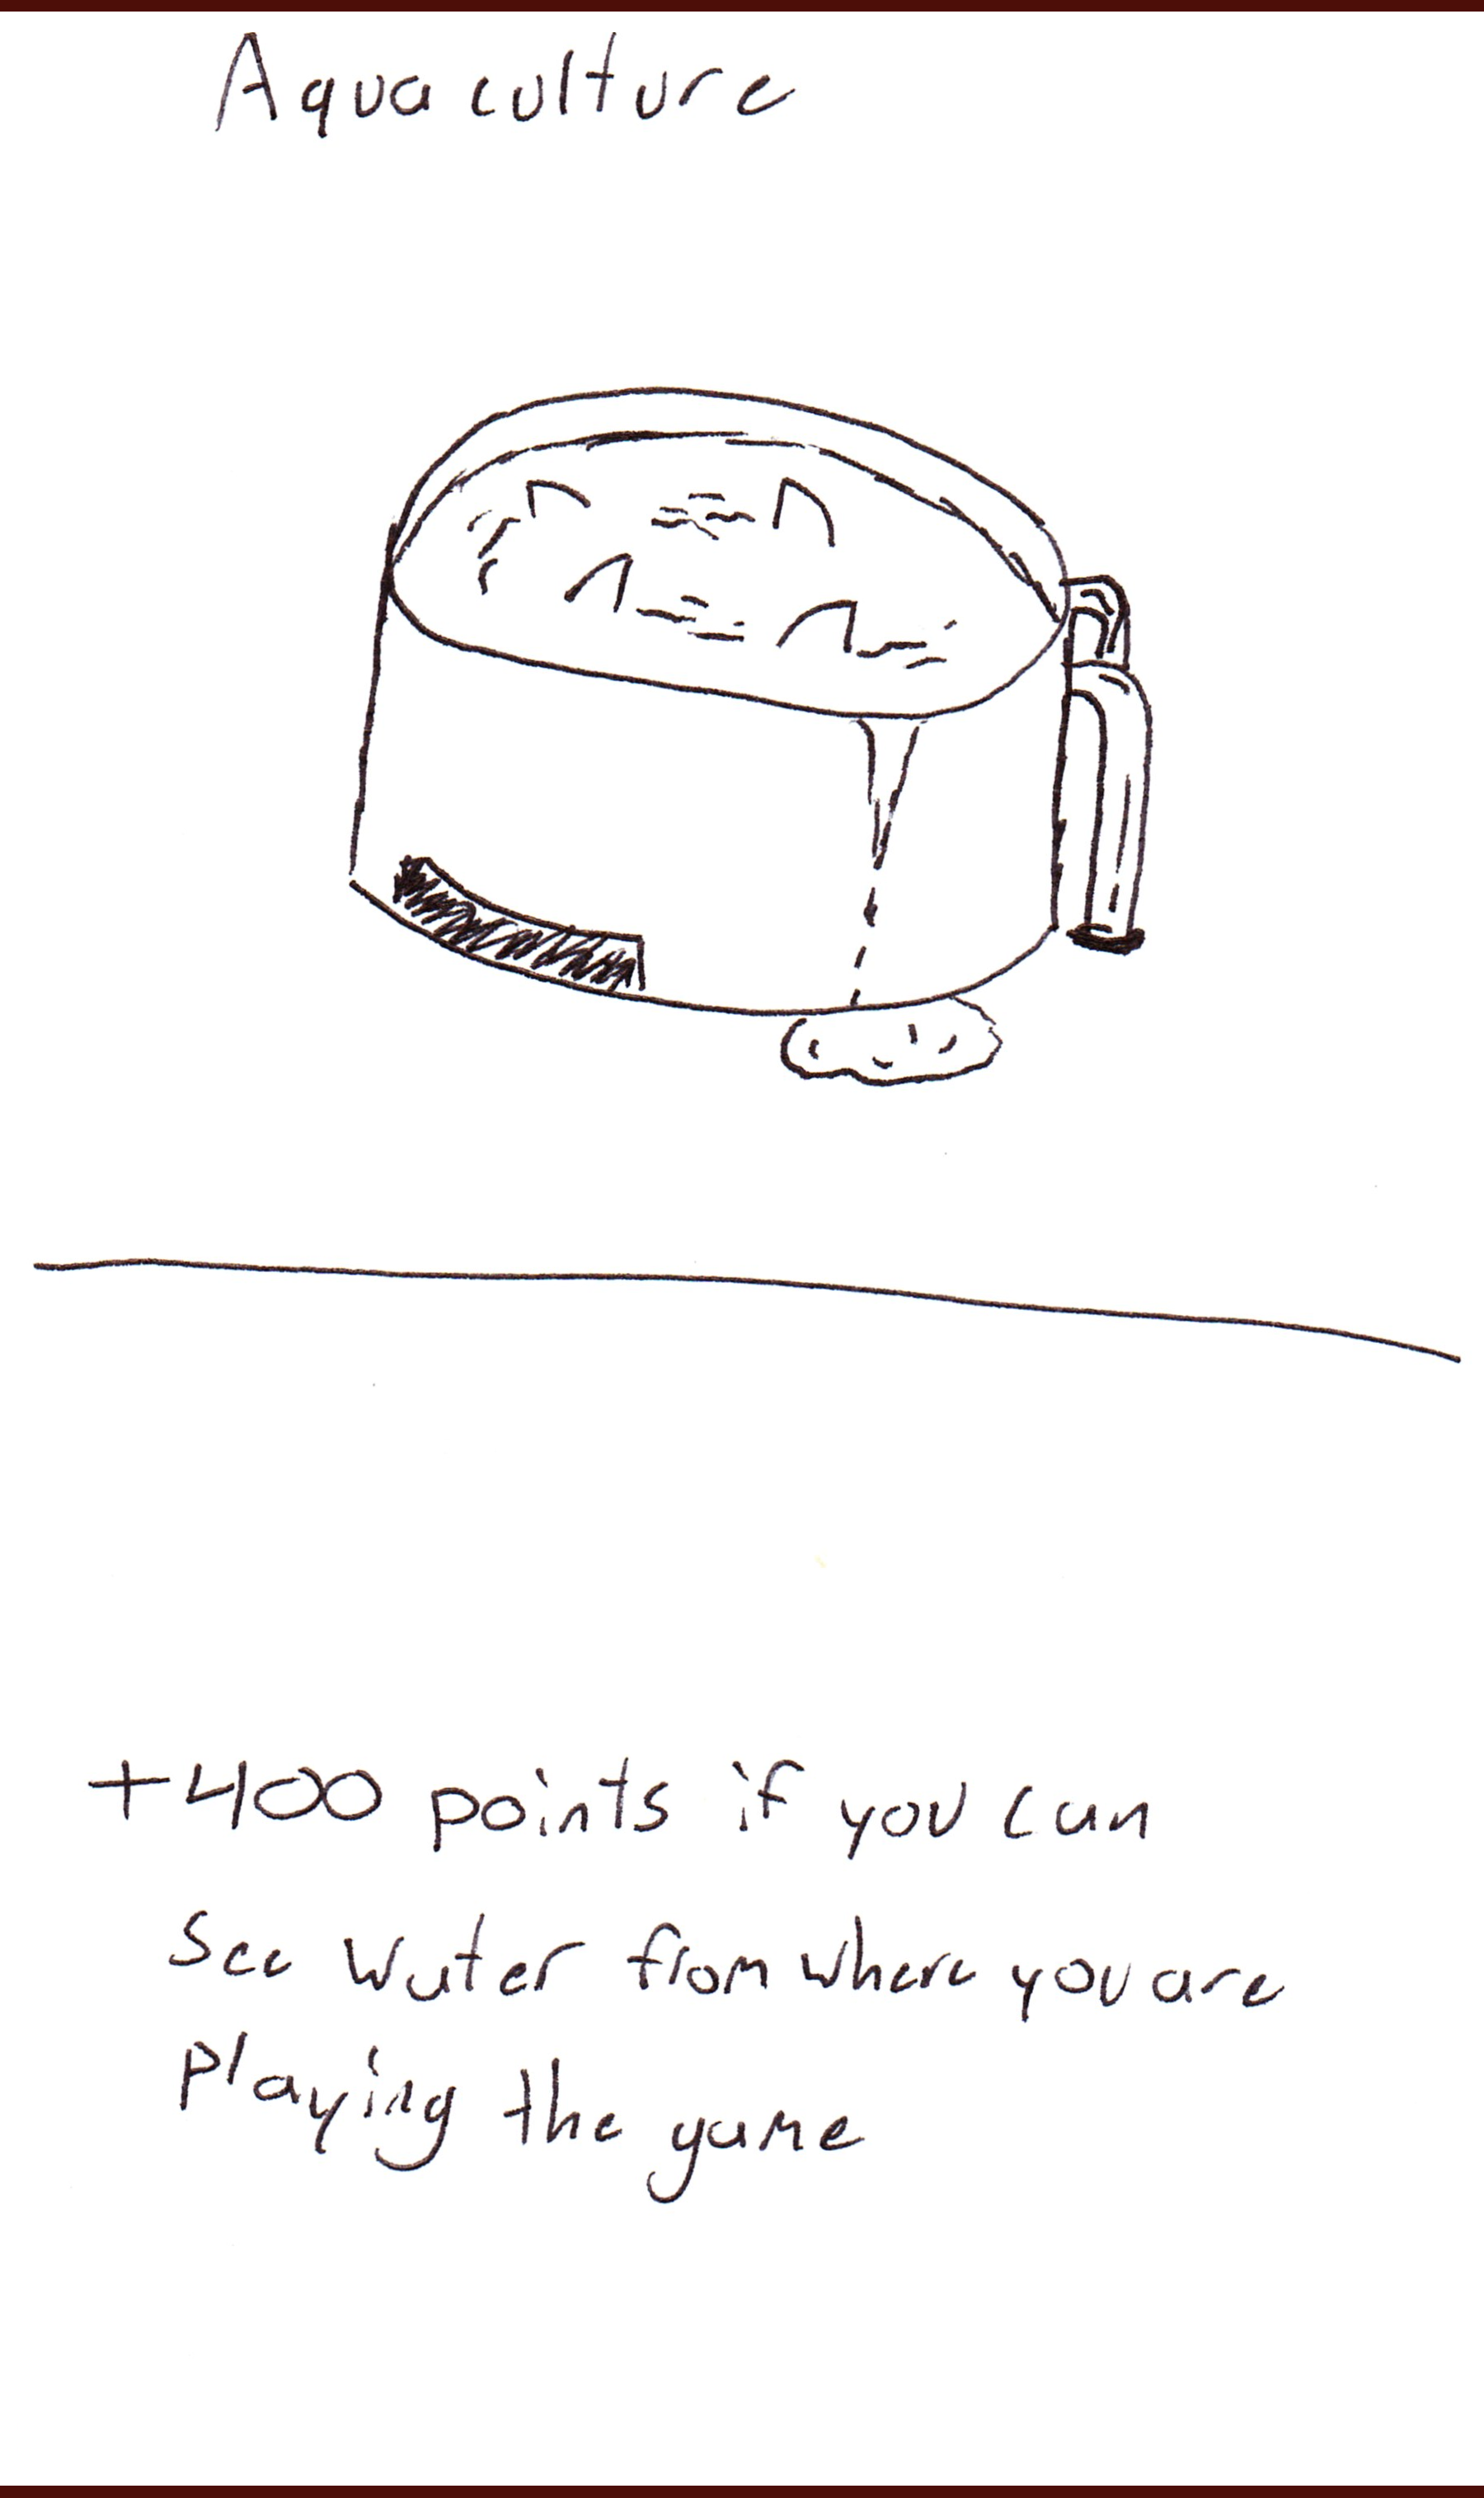 Aquaculture
+400 points if you can
see water from where you are
Playing the game